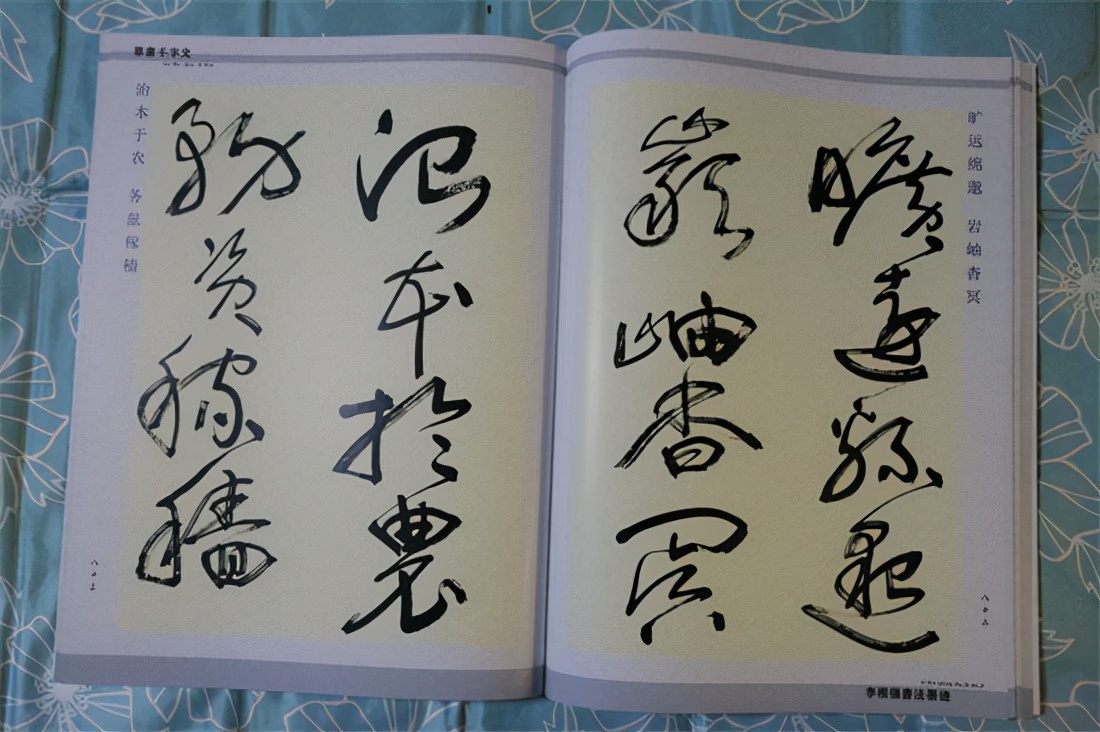 旷远绵邈 岩岫杳冥
曠遠綿邈
巖岫杳冥
治本於農
務資稼穡
治本于农 务兹稼穑
草書千字文